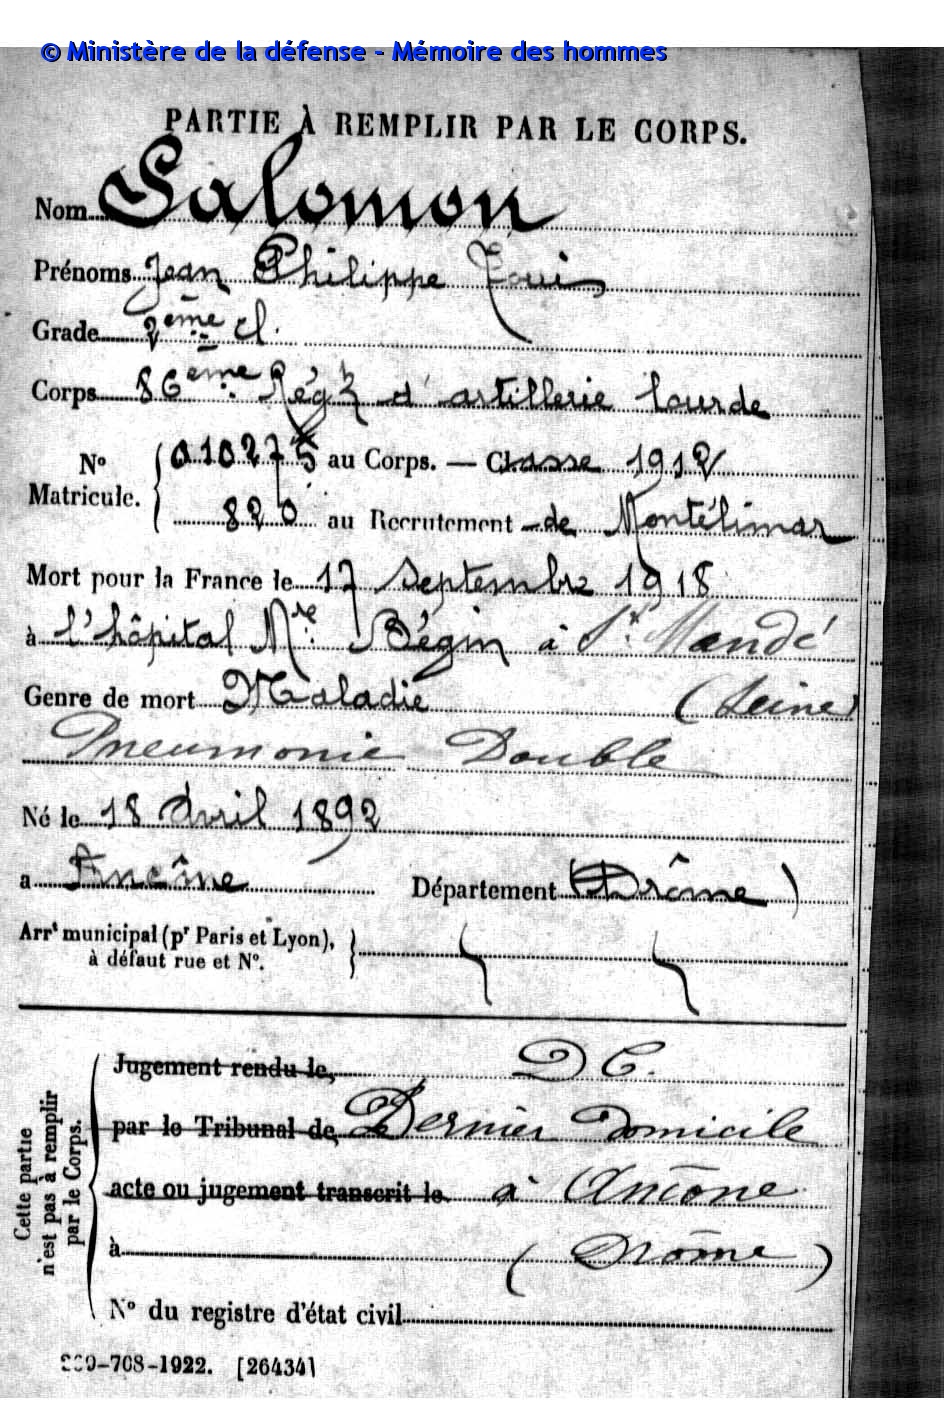 © Ministère de la défense - Mémoire des hommes
PARTIE À REMPLIR PAR LE CORPS.
Nom Salomon
Prénoms Jean Philippe Louis
Grade 2ème cl.
Corps 86ème Régt d'artillerie lourde
No Matricule. 010275 au Corps. — Classe 1912
820 au Recrutement de Montélimar
Mort pour la France le 17 septembre 1918
à l'hôpital Mre Bégin à St Mandé
Genre de mort Maladie (Seine)
Pneumonie Double
Né le 18 Avril 1892
a Ancône Département (Drôme)
Arrt municipal (pr Paris et Lyon),
à défaut rue et No.
Cette partie n'est pas à remplir par le Corps.
Jugement rendu le, D C.
par le Tribunal de Dernier Domicile
acte ou jugement transcrit le à Ancône
à (Drôme)
No du registre d'état civil
-708-1922. [26434]